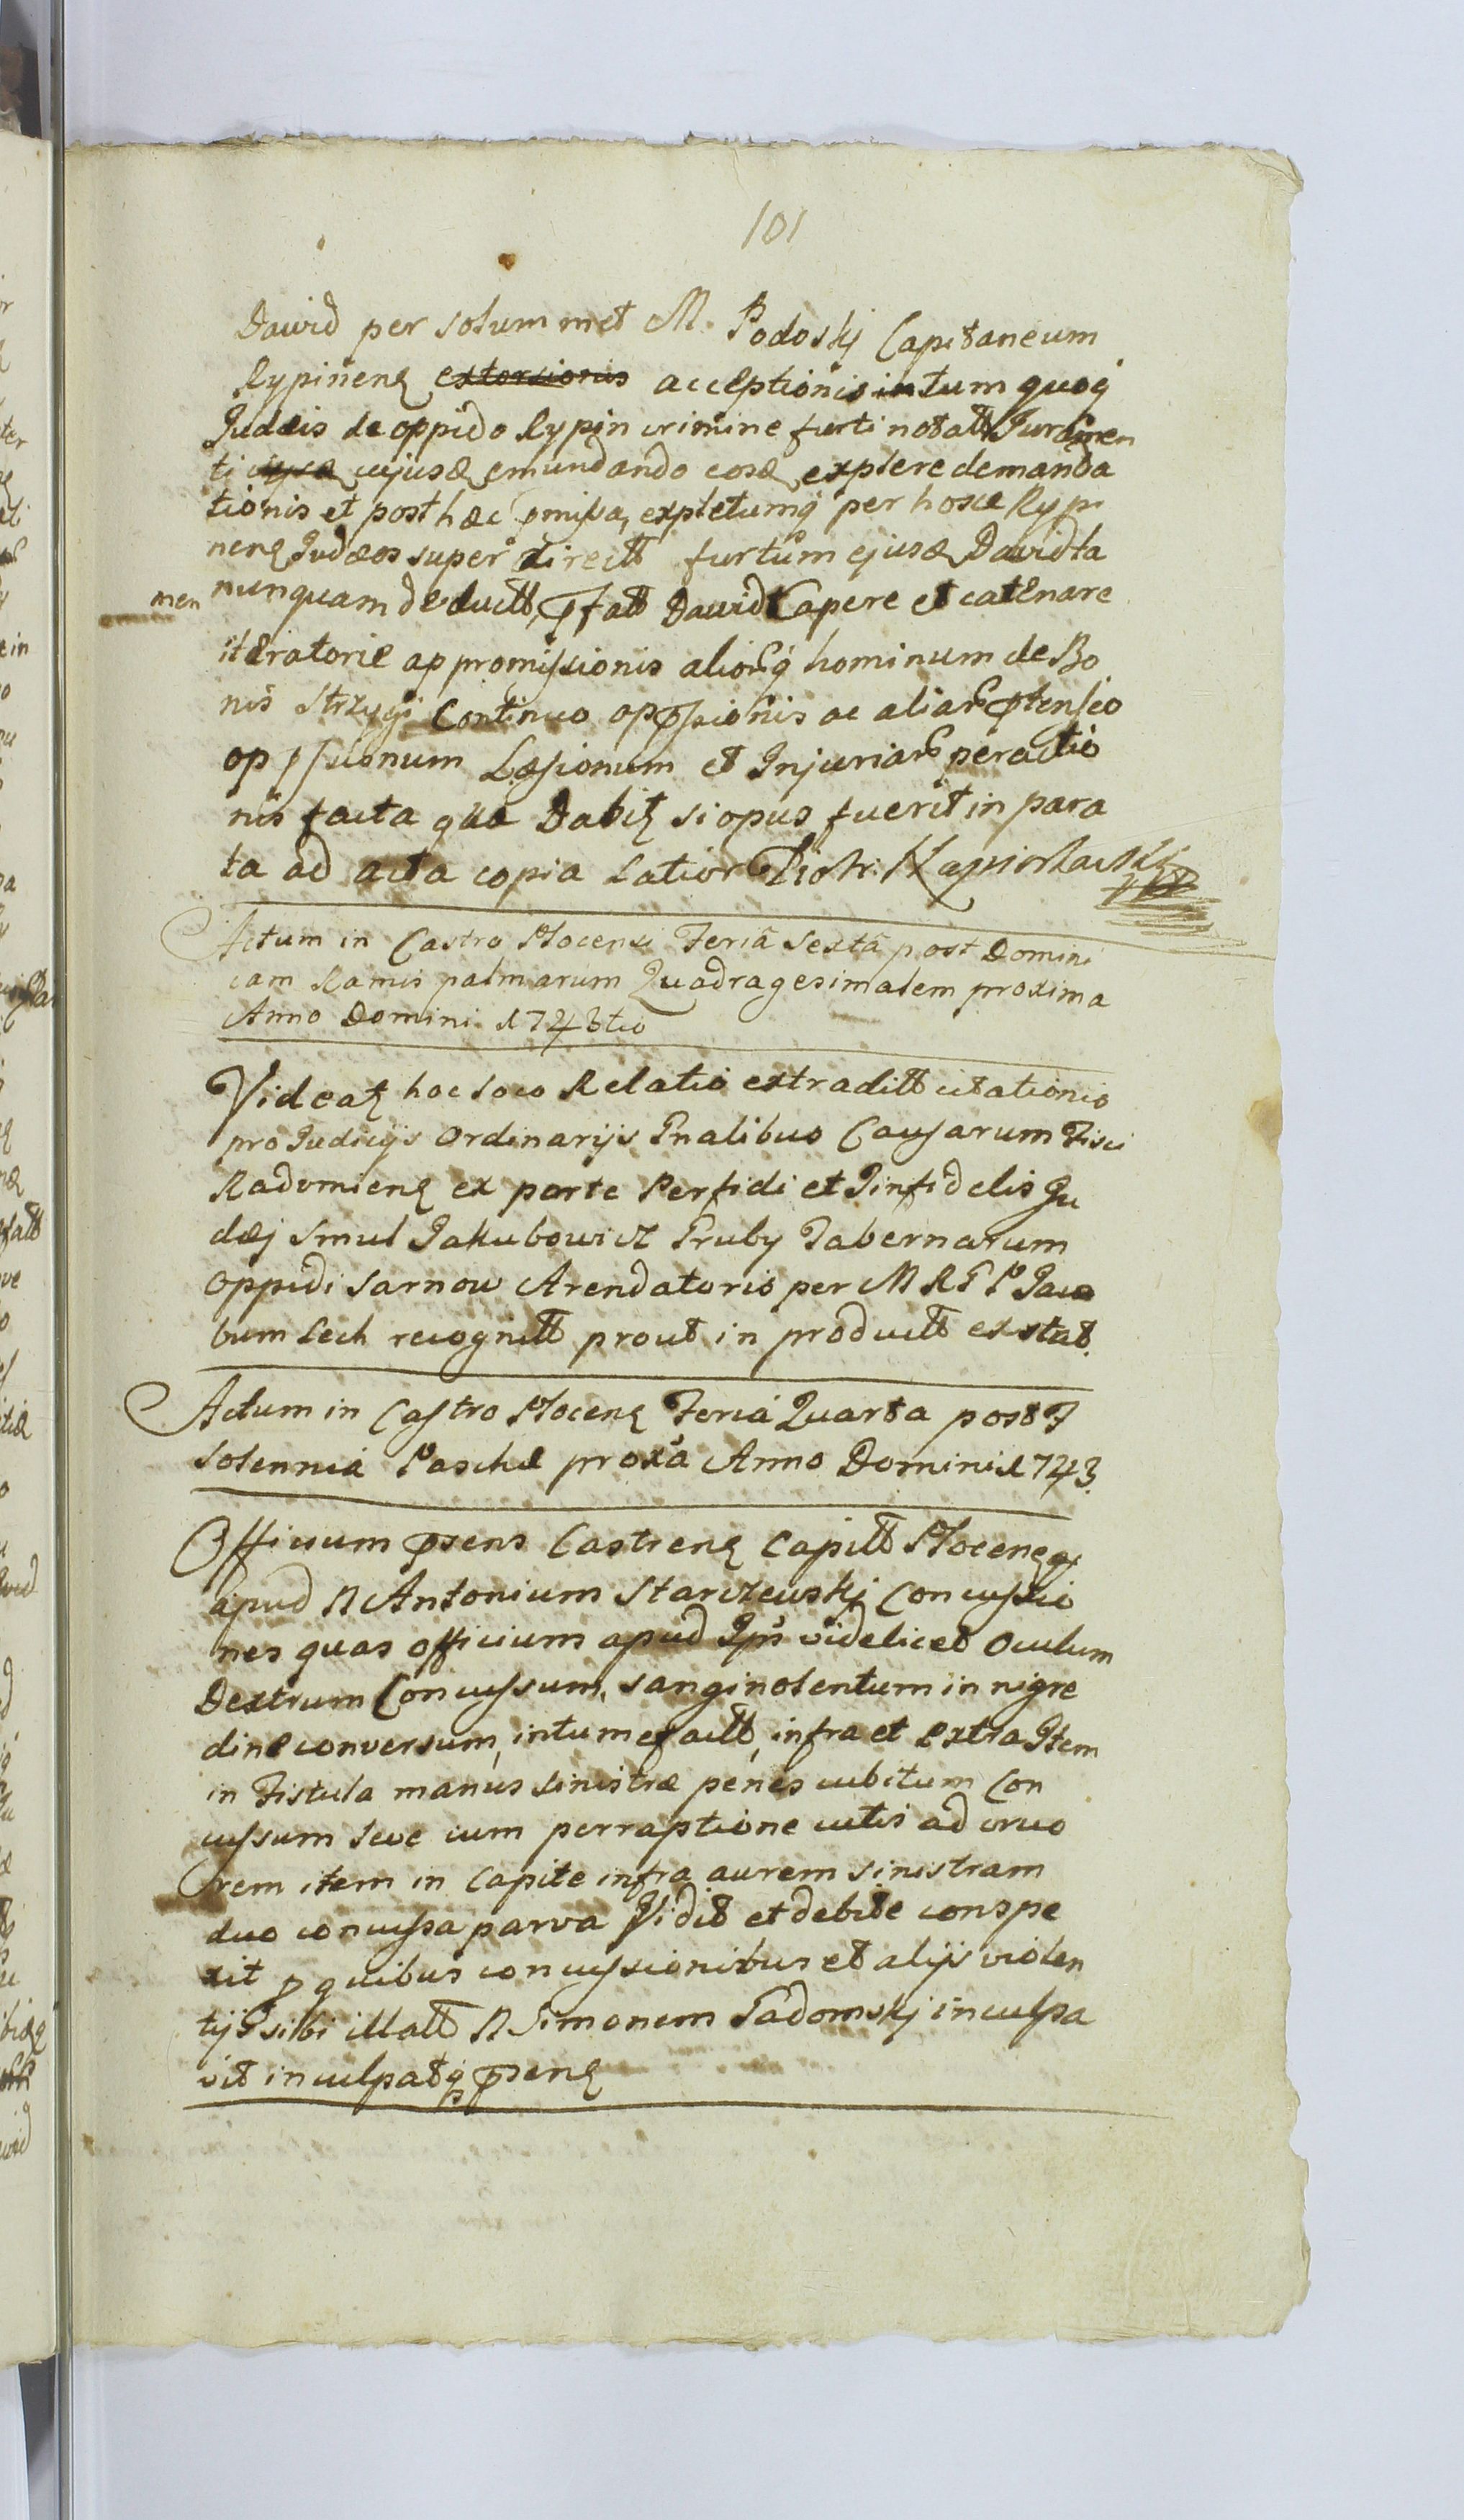 101
David per solummet M. Podoskj Capitaneum
Rypinenę extorsionis acceptionis in tum quoq
Judæis de oppido Rypin crimine furti notatt Juramen
ti cujusę emundando eosę explere demanda
tionis et post hæc pmissa, expletumq per hosce Rypi
nenę Judæos super directt furtum ejusę David ta
men nunquam deductt, pfatt David Capere et catenare
iteratorie appromissionis aliorq hominum de Bo
nis Strzygi Continuo oppssionis ac aliar ptensio
oppssionum Læsionum et Injuriar peractio
nis facta quæ Dabitę si opus fuerit in para
ta ad acta copia Latior Piotr
Actum in Castro Plocensi Feria Sexta post Domini
cam Ramis palmarum Quadragesimalem proxima
Anno Domini 1743tio
Videatę hoc loco Relatio extraditt citationis
pro Judicijs Ordinarijs Gnalibus Causarum Fisci
Radomienę ex parte Perfidi et Jinfidelis Ju
dæj Smul Jakubowicz Gruby Tabernarum
Oppidi Sarnow Arendatoris per M R G P Jaco
bum Lech recognitt prout in productt exstat.
Actum in Castro Plocenę Feria Quarta post F
Solennia Paschæ proxa Anno Domini 1743
Officium psens Castrenę Capitt Plocenę
apud N Antonium Starczewskj Concussio
nes quas officium apud Ips videlicet Oculum
Dextrum Concussum, sanginolentum in nigre
dine conversum, intumefactt, infra et extra Item
in Fistula manus sinistræ penes cubitum Con
cussum leve cum perraptione cutis ad cruo
rem item in Capite infra aurem sinistram
duo concussa parva Vidit et debite conspe
xit p quibus concussionibus et alijs violen
tijs sibi illatt N Simonem Gadomskj inculpa
vit inculpatq psenę